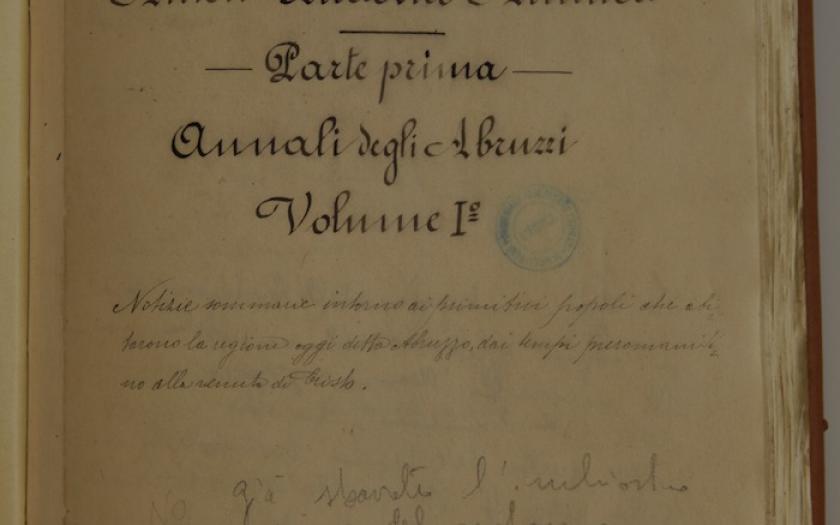 — Parte prima —
Annali degli Abruzzi
Volume Iº
Notizie sommarie intorno ai primitivi popoli che abi-
tarono la regione oggi detta Abruzzo, dai tempi preromani fi-
no alla venuta di Cristo.
già l'inchiostro